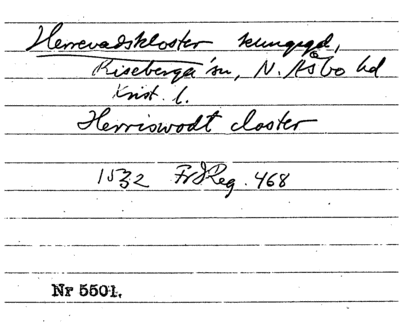 Herrevadskloster kungsgd,
Riseberga sn, N. Åsbo hd
Krist. l.
Herriswodt closter
1532 FrIReg. 468
Nr 5501.